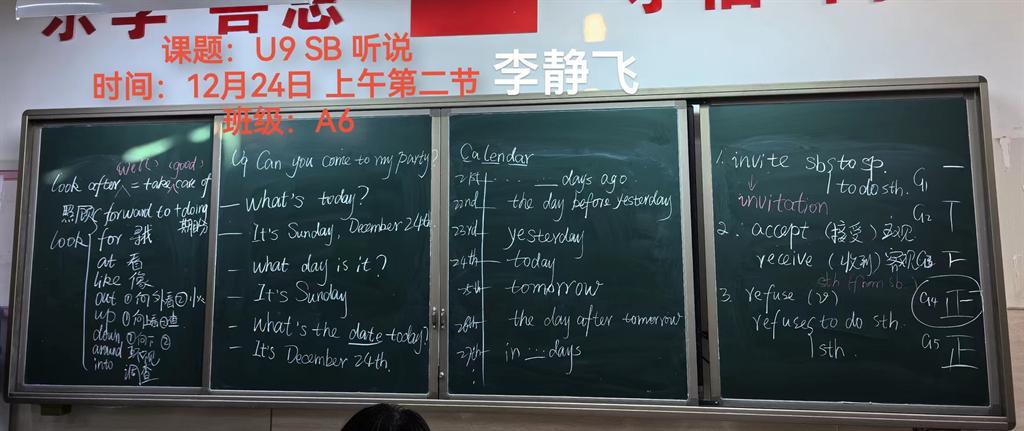 乐学 善思
课题：U9 SB 听说
时间：12月24日 上午第二节
李静飞
班级：A6
well (good)
look after = take care of
照顾
forward to + doing
期盼
look
for 寻找
at 看
like 像
out ①向外看②小心
up ①向上看②查
down ①向下②
around 环视
into 调查
U9 Can you come to my party?
— What's today?
— It's Sunday, December 24th.
— what day is it?
— It's Sunday
— What's the date today?
— It's December 24th.
Calendar
21st ... days ago
22nd the day before yesterday
23rd yesterday
24th today
25th tomorrow
26th the day after tomorrow
27th in ... days
1. invite sb to sp.
to do sth.
invitation
2. accept (接受) 主观
receive (收到) 客观
sth from sb.
3. refuse (v)
refuse to do sth.
sth.
G1 一
G2 丅
G3 下
G4 正一
G5 正